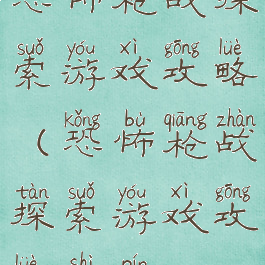 恐怖枪战探
suǒ yóu xì gōng lüè
索游戏攻略
kǒng bù qiāng zhàn
（恐怖枪战
tàn suǒ yóu xì gōng
探索游戏攻
lüè shì pín